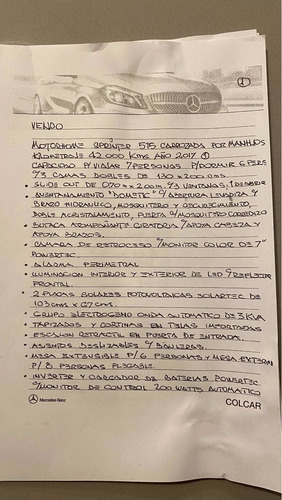 ①
VENDO
MOTORHOME SPRINTER 515 CARROZADA POR MANHUOS
KILOMETROS 42.000 KMS AÑO 2017 ①
CAPACIDAD P/VIAJAR 7 PERSONAS P/DORMIR 6 PERS
c/3 CAMAS DOBLES DE 130 x 200 cms.
• SLIDE OUT DE 0,70 x 2,00 m. c/3 VENTANAS, 1
• AVENTANAMIENTO "DOMETIC" c/ABERTURA LEVADIZA c/
BRAZO HIDRAULICO, MOSQUITERO Y OSCURECIMIENTO,
DOBLE ACRISTALAMIENTO, PUERTA c/MOSQUITERO CORREDIZO
• BUTACA ACOMPAÑANTE GIRATORIA c/APOYA CABEZA Y
APOYA BRAZOS.
• CAMARA DE RETROCESO c/MONITOR COLOR DE 7"
POWERTEC.
• ALARMA PERIMETRAL
• ILUMINACION INTERIOR Y EXTERIOR DE LED c/REFLECTOR
FRONTAL.
• 2 PLACAS SOLARES FOTOVOLTAICAS SOLARTEC DE
103 cm x 67 cm.
• GRUPO ELECTROGENO ONDA AUTOMATICO DE 3 KVA
• TAPIZADOS Y CORTINAS EN TELAS IMPORTADAS
• ESCALON RETRACTIL EN PUERTA DE ENTRADA.
• ASIENTOS DESLIZABLES c/BAULERAS.
• MESA EXTENSIBLE P/6 PERSONAS Y MESA EXTERNA
P/8 PERSONAS PLEGABLE.
• INVERTER Y CARGADOR DE BATERIAS POWERTEC
c/MONITOR DE CONTROL 200 WATTS AUTOMATICO
Mercedes-Benz
COLCAR